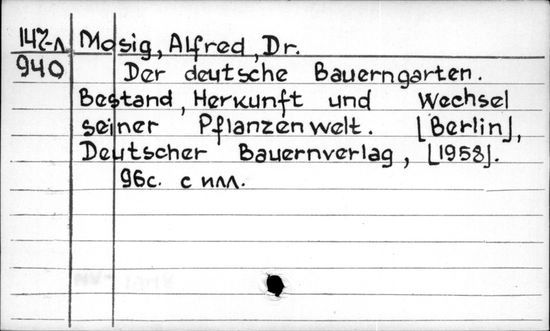 147-Л Mosig, Alfred, Dr.
940 Der deutsche Bauerngarten.
Bestand, Herkunft und Wechsel
seiner Pflanzenwelt. [Berlin],
Deutscher Bauernverlag, [1958].
96с. с илл.